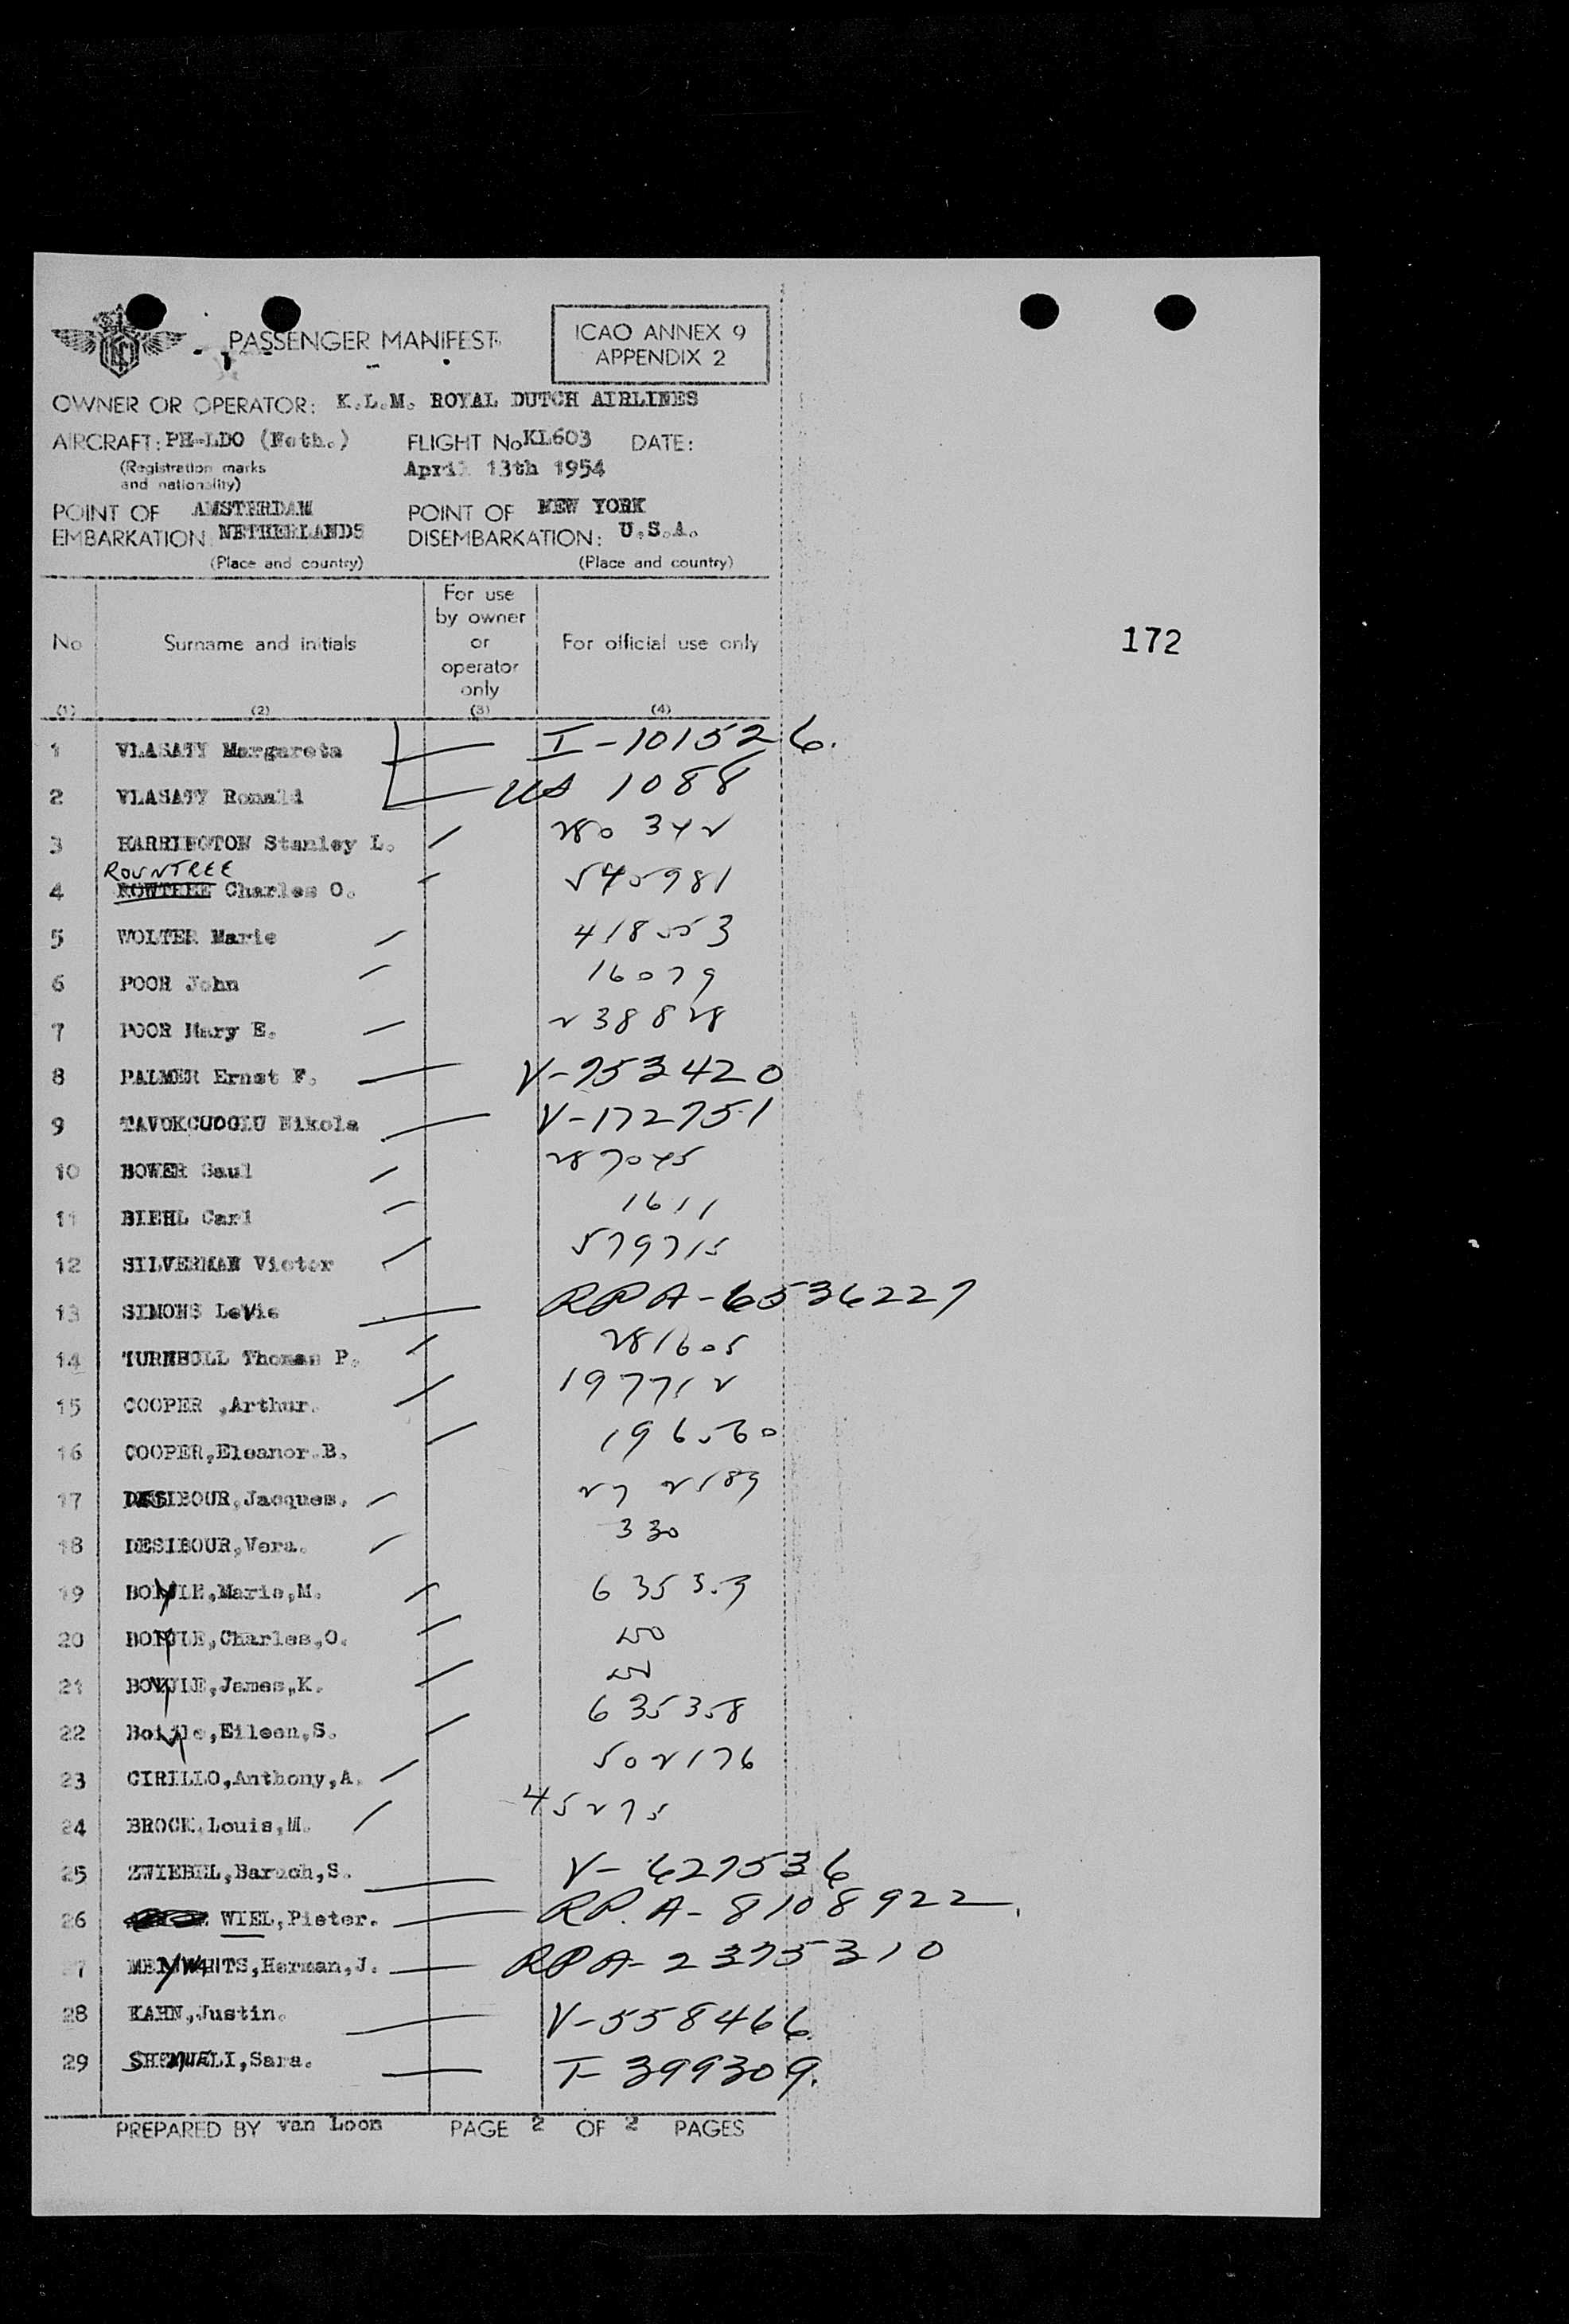 PASSENGER MANIFEST
ICAO ANNEX 9
APPENDIX 2
OWNER OR OPERATOR: K.L.M. ROYAL DUTCH AIRLINES
AIRCRAFT: PH-LDO (Neth.) FLIGHT No KL603 DATE:
(Registration marks and nationality) April 13th 1954
POINT OF EMBARKATION: AMSTERDAM NETHERLANDS
(Place and country)
POINT OF DISEMBARKATION: NEW YORK U.S.A.
(Place and country)
No Surname and initials For use by owner or operator only For official use only
(1) (2) (3) (4)
172
1 VLASATY Margareta I-101526.
2 VLASATY Ronald US 1088
3 HARRINGTON Stanley L. 280342
ROUNTREE
4 ROWTREE Charles O. 545981
5 WOLTER Marie 418553
6 POOR John 16079
7 POOR Mary E. 238828
8 PALMER Ernst F. V-953420
9 TAVOKCUOGLU Nikola V-172751
10 BOWER Saul 287045
11 BIEHL Carl 1611
12 SILVERMAN Victor 579715
13 SIMONS Levie RPA-6536227
14 TURNBULL Thomas P. 281605
15 COOPER ,Arthur. 197712
16 COOPER,Eleanor.B. 196560
17 DESIBOUR,Jacques. 272189
18 DESIBOUR,Vera. 330
19 Marie,M.
20 Charles,O.
21 James,K.
22 Eileen,S. 635358
23 CIRILLO,Anthony,A. 502176
24 BROCK,Louis,M. 45275
25 ZWIEBEL,Baruch,S. V-627536
26 WIEL,Pieter. RP.A-8108922.
27 Herman,J. RPA-2375310
28 KAHN,Justin. V-558466.
29 SHEMUELI,Sara. T-399309.
PREPARED BY van Loon PAGE 2 OF 2 PAGES